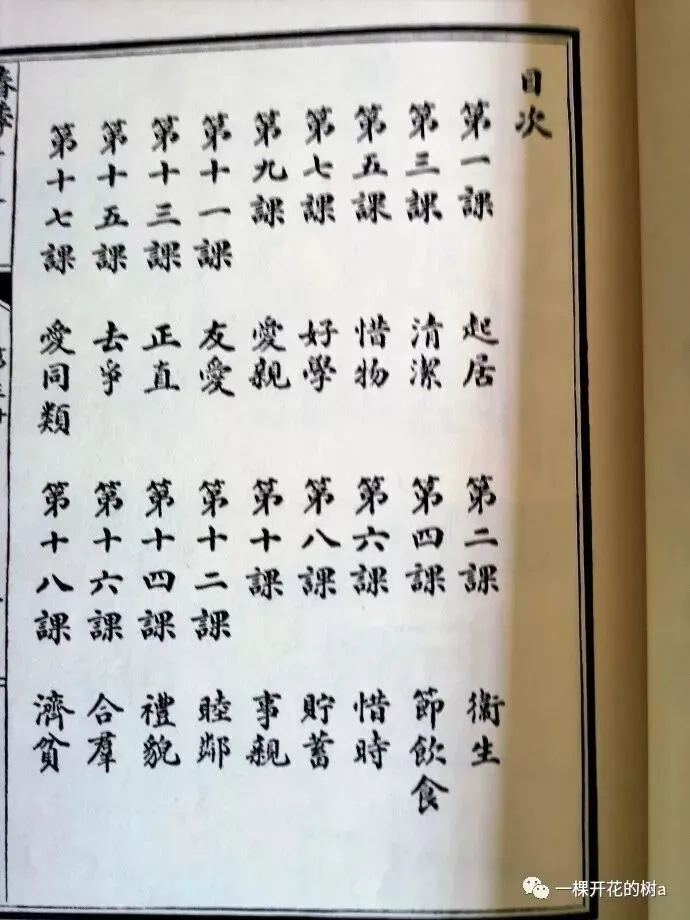 目次
第一課 起居 第二課 衞生
第三課 清潔 第四課 節飲食
第五課 惜物 第六課 惜時
第七課 好學 第八課 貯蓄
第九課 愛親 第十課 事親
第十一課 友愛 第十二課 睦鄰
第十三課 正直 第十四課 禮貌
第十五課 去爭 第十六課 合羣
第十七課 愛同類 第十八課 濟貧
一棵开花的树a